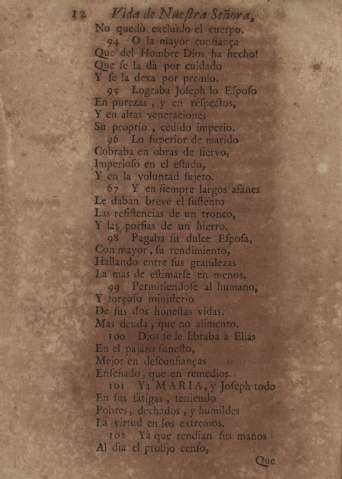 12 Vida de Nuestra Señora,
No quedò excluido el cuerpo.
94 O la mayor confiança
Que del Hombre Dios ha hecho!
Que se la dà por cuidado
Y se la dexa por premio.
95 Lograba Joseph lo Esposo
En purezas, y en respectos,
Y en altas veneraciones
Su proprio, cedido imperio.
96 Lo superior de marido
Cobraba en obras de siervo,
Imperioso en el estado,
Y en la voluntad sujeto.
67 Y en siempre largos afanes
Le daban breve el sustento
Las resistencias de un tronco,
Y las porfias de un hierro.
98 Pagaba su dulce Esposa,
Con mayor, su rendimiento,
Hallando entre sus grandezas
La mas de estimarse en menos.
99 Permitiendose al humano,
Y forçoso ministerio
De sus dos honestas vidas.
Mas deuda, que no alimento.
100 Dios se le libraba à Elias
En el pajaro funesto,
Mejor en desconfianças
Enseñado, que en remedios.
101 Ya MARIA, y Joseph todo
En sus fatigas, teniendo
Pobres, dechados, y humildes
La virtud en sus extremos.
102 Ya que rendian sus manos
Al dia el prolijo censo,
Que